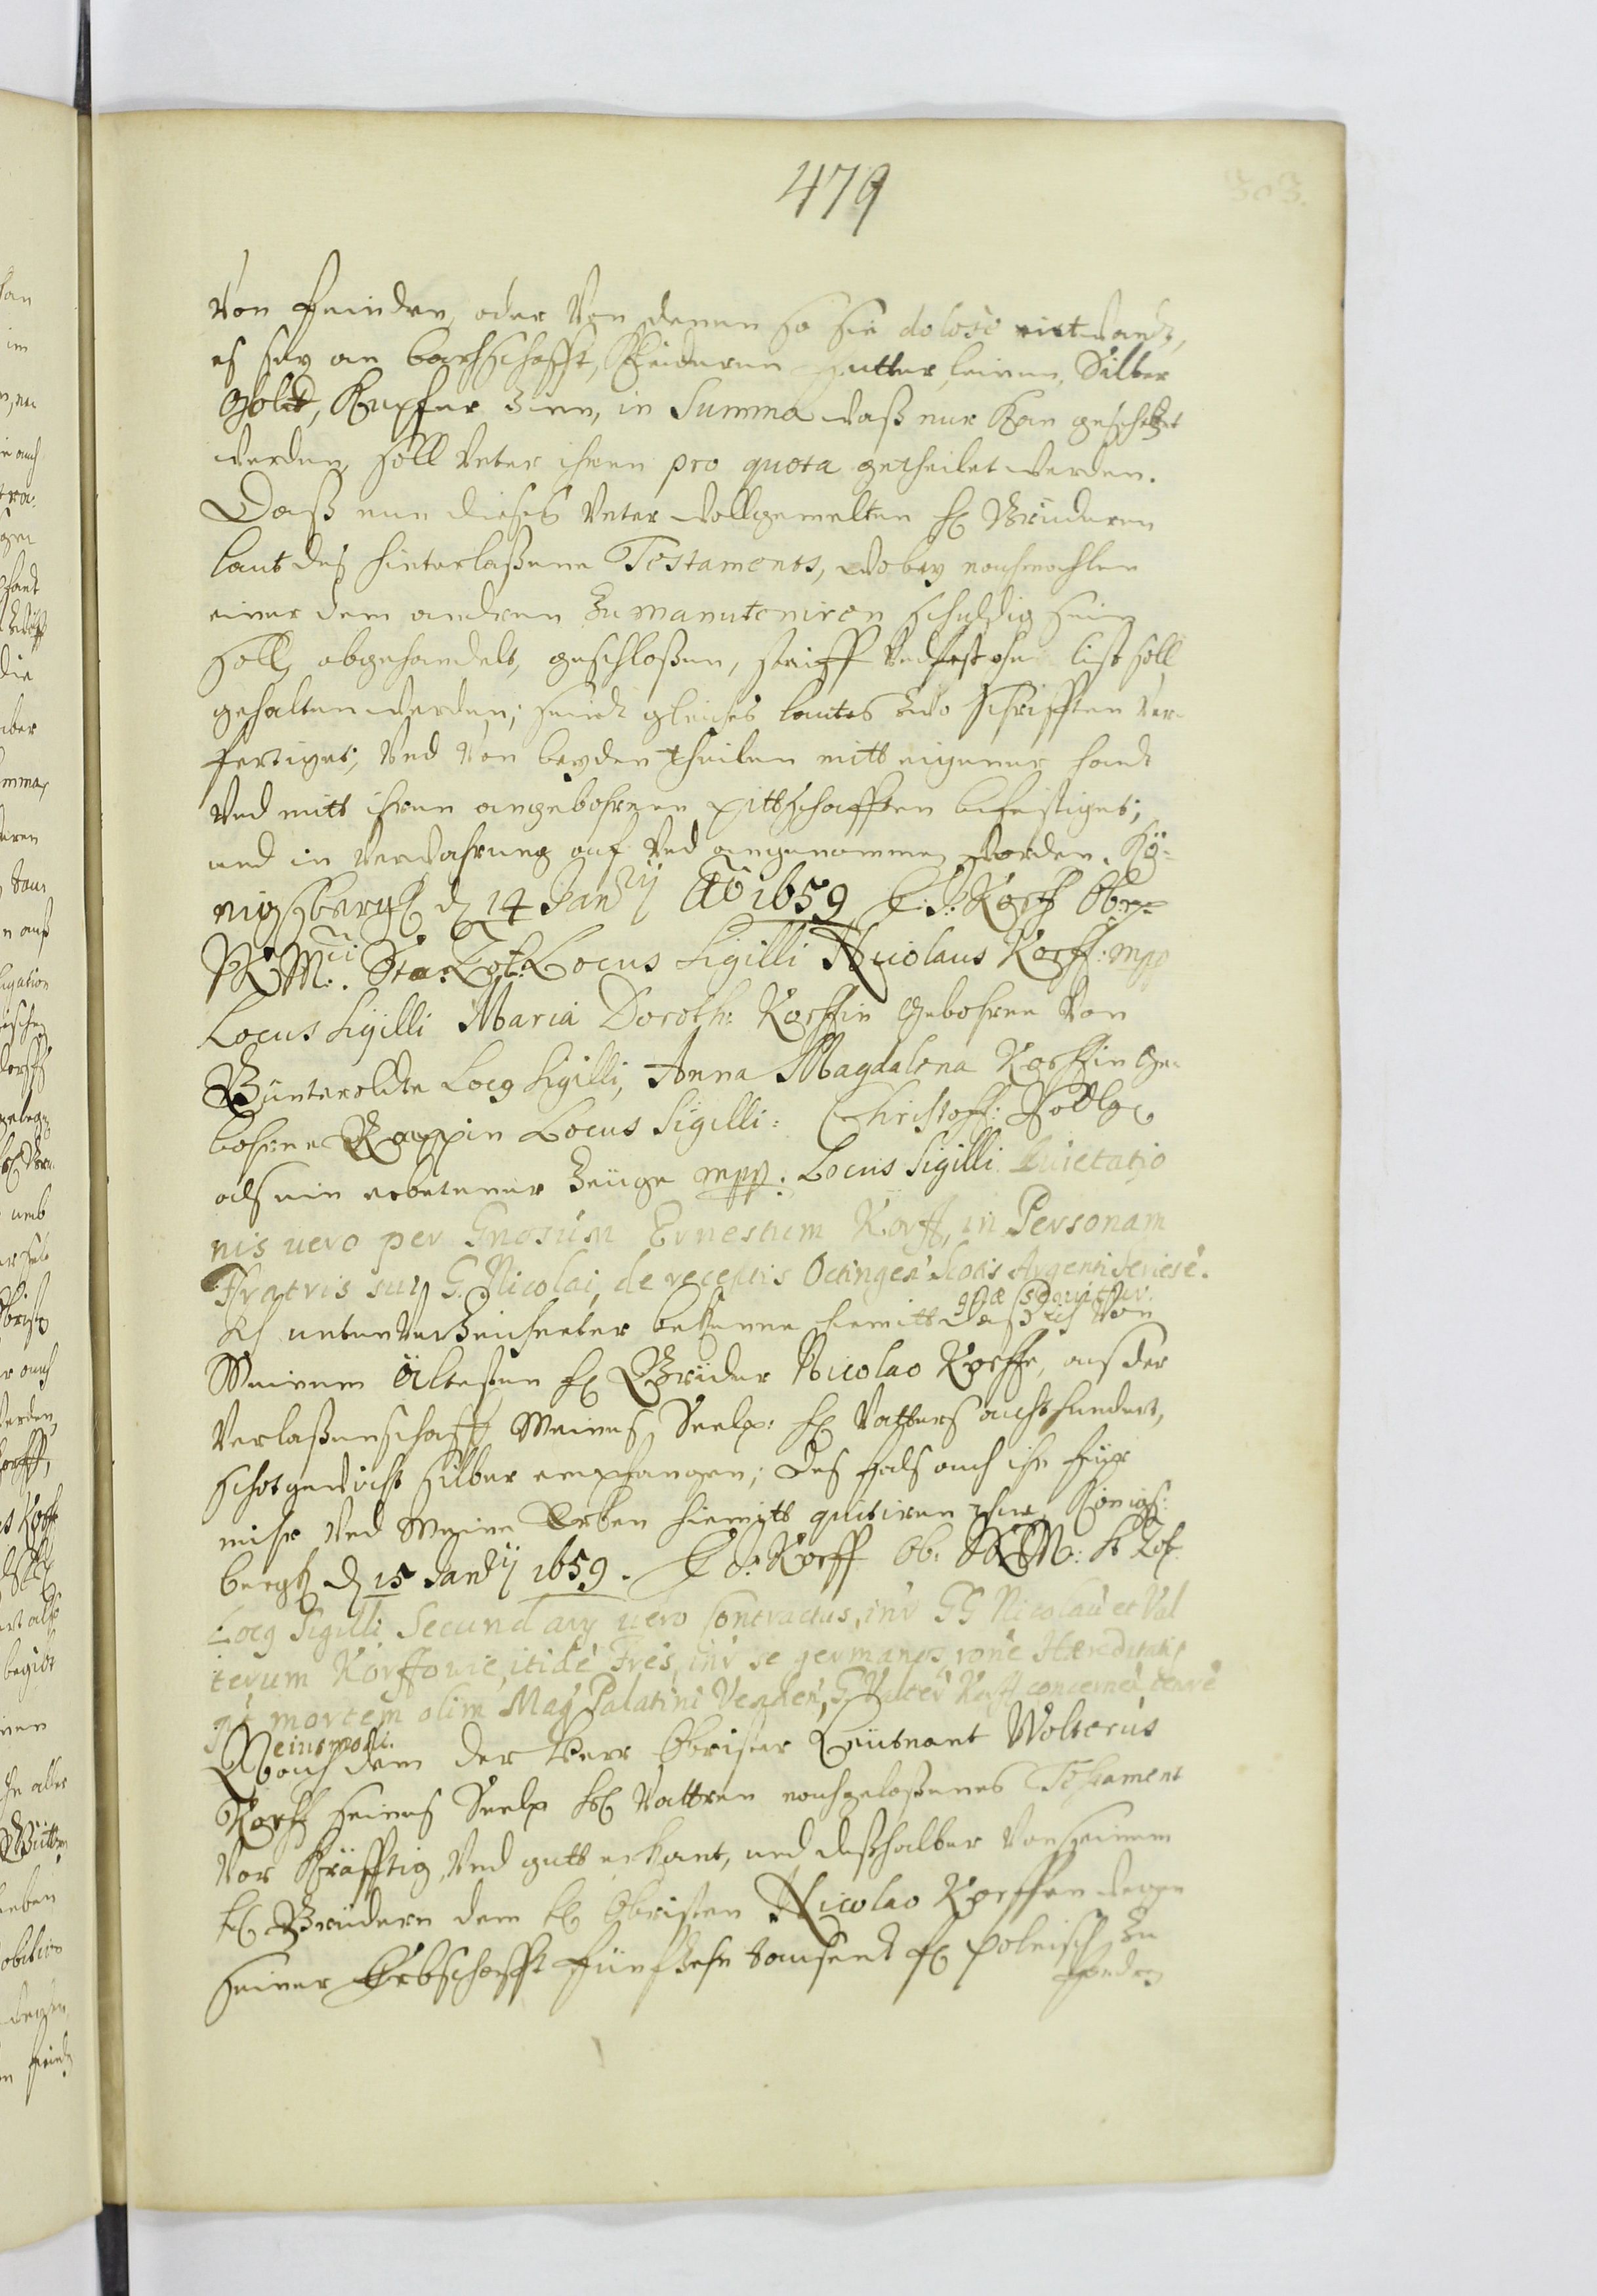 479
303.
Von Feinden, oder Von denen so sie dolose entwandt,
es sey an barschafft, Kleideren Futter, leinen, Silber
Goldt, Kupfer Zinn, in Summa waß nur Kan geschetzet
werden, soll Vnter ihnen pro quota getheilet werden.
Daß nun dieses Vnter wollgemelten H. Brüderen
laut des hinterlaßene Testaments, wobey nochmahlen
einer dem andren Zu manuteniren schuldig sein
soll, abgehandelt, geschloßen, steiff Vnd fest ohne list soll
gehalten werden; seindt gleiches lautes Zwo Schrifften Ver-
fertiget; Vnd Von beyden Theilen mitt eigener handt
Vnd mitt ihren angebohrnen pittschafften befestiget;
und in Verwahrung auf Vnd angenommen worden. Kö-
nigsbergk d 14 Januarij Ao 1659 E: J: Korff Ob:
SRM: Sta: Locus Sigilli Nicolaus Korff: mpp
Locus Sigilli Maria Doroth: Korffin Gebohrne Von
Locus Sigilli, Anna Magdalena Korffin Ge-
bohrne Rappin Locus Sigilli: Christoff:
als ein erbetener Zeuge mpp: Locus Sigilli. Quietatio
nis uero per Gnosum Ernestum Korff, in Personam
Fratris suij G. Nicolai, de receptis Octingen' Scotis Argenti seriesē.
quae sequitur.
Ich unten Verzeichneter bekenne hiemitt daß ich Von
Meinem Ältesten H. Brüder Nicolao Korffe, aus der
Verlaßenschafft Meines Seelg: H. Vatters achthundert,
schotgewicht Silber empfangen; des fals auch ihn für
mihr Vnd Meine Erben hiemitt quitiren thue, Königs:
bergk d 15 Januarij 1659. E. J: Korff Ob: SRM:
Locus Sigilli Secundarij uero Contractus, inr GG Nicolaū et Val
terum Korffowie, itidē Frēs, inr se germanos, rōne Hæreditatis
mortem olim Mag Palatini Venden', G Valter Korff concernen' tenrē
eiusmodi.
Nach dem der Herr Obrister Leütnant Wolterus
Korff seines Seelg H. Vattren nachgelaßenes Testament
Vor Kräfftig Vnd gutt erkant, und deßhalber Von seinem
H. Brüdern dem H. Obristen Nicolao Korffen wegen
seiner Erbschafft Fünfzehn tausent fl. polnisch Zu
fordren